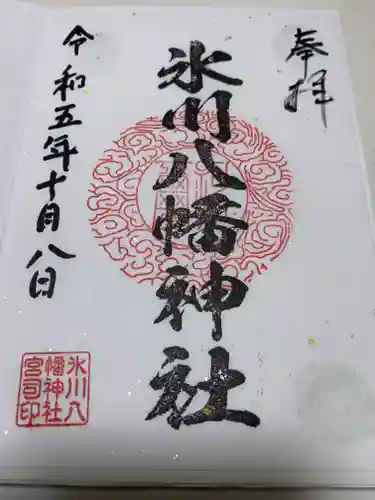 奉拝
氷川八幡神社
令和五年十月八日
氷川八
幡神社
宮司印